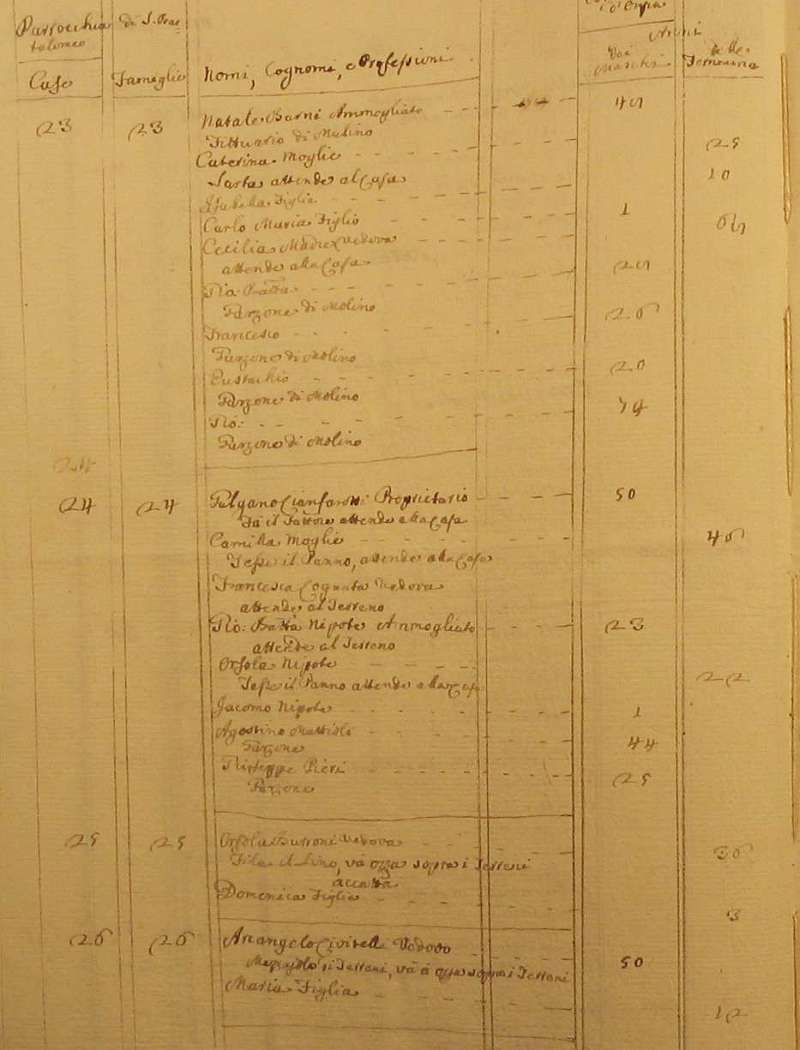 Parrocchia di S. Bar
tolomeo
Anni
Case Fameglie Nomi, Cognomi, e Professioni dei Maschi delle Femmine
23 23 Natale Barni Ammogliato 49
di Molino
Caterina Moglie 25
Sarta attende al Casa
Figlia 10
Carlo Maria Figlio 1
Cecilia Madre Vedova
attende alla Casa
Gio. Batta 29
Garzone di Molino
Francesco 26
Garzone di Molino
Eustachio 20
Garzone di Molino
Gio: 74
Garzone di Molino
24
24 24 Proprietario 50
Fà il Fattore attende alla Casa
Camilla Moglie 46
Tesse il Panno, attende alla Casa
Francesca Cognata Vedova
attende al Terreno
Gio: Batta Nipote Ammogliato 23
attende al Terreno
Orsola Nipote 22
Tesse il Panno attende alla Casa
Jacomo Nipote 1
Agostino Mattioli 44
Garzone
Giuseppe Pieri 25
Garzone
25 25 Orsola Vedova 36
Fila il Lino, và opra sopra i Terreni
accatta
Domenica Figlia 3
26 26 Arcangelo Civitelli Vedovo 50
Terreni, và a opra sopra i Terreni
Maria Figlia 12